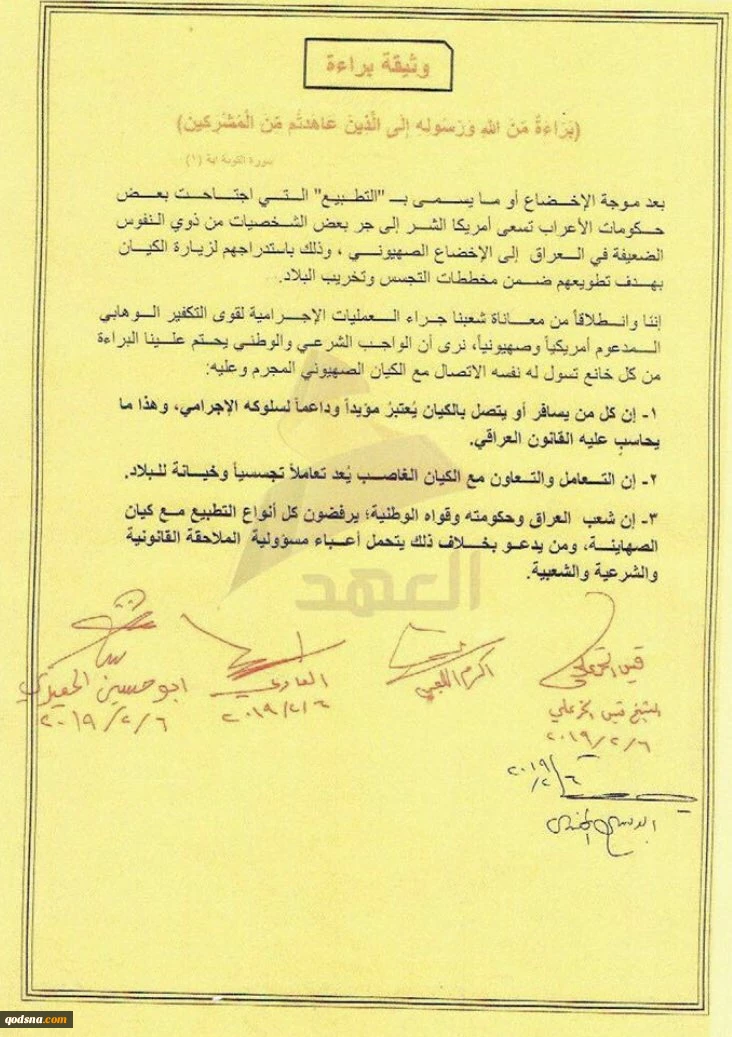 وثيقة براءة
(بَرَاءَةٌ مِّنَ اللهِ وَرَسُولِهِ إِلَى الَّذِينَ عَاهَدتُّم مِّنَ الْمُشْرِكِين)
سورة التوبة اية (١)
بعد موجة الإخضاع أو ما يسمى بـ "التطبيع" التي اجتاحت بعض
حكومات الأعراب تسعى أمريكا الشر إلى جر بعض الشخصيات من ذوي النفوس
الضعيفة في العراق إلى الإخضاع الصهيوني ، وذلك باستدراجهم لزيارة الكيان
بهدف تطويعهم ضمن مخططات التجسس وتخريب البلاد.
إننا وانطلاقاً من معاناة شعبنا جراء العمليات الإجرامية لقوى التكفير الوهابي
المدعوم أمريكياً وصهيونياً، نرى أن الواجب الشرعي والوطني يحتم علينا البراءة
من كل خانع تسول له نفسه الاتصال مع الكيان الصهيوني المجرم وعليه:
١- إن كل من يسافر أو يتصل بالكيان يُعتبرُ مؤيداً وداعماً لسلوكه الإجرامي، وهذا ما
يحاسب عليه القانون العراقي.
٢- إن التعامل والتعاون مع الكيان الغاصب يُعد تعاملاً تجسسياً وخيانة للبلاد.
٣- إن شعب العراق وحكومته وقواه الوطنية؛ يرفضون كل أنواع التطبيع مع كيان
الصهاينة، ومن يدعو بخلاف ذلك يتحمل أعباء مسؤولية الملاحقة القانونية
والشرعية والشعبية.
العهد
قيس الخزعلي
الشيخ قيس الخزعلي
٢٠١٩/٢/٦
اكرم الكعبي
٢٠١٩/٢/٦
ابو حسين
٢٠١٩/٢/٦
٢٠١٩/٢/٦
qodsna.com